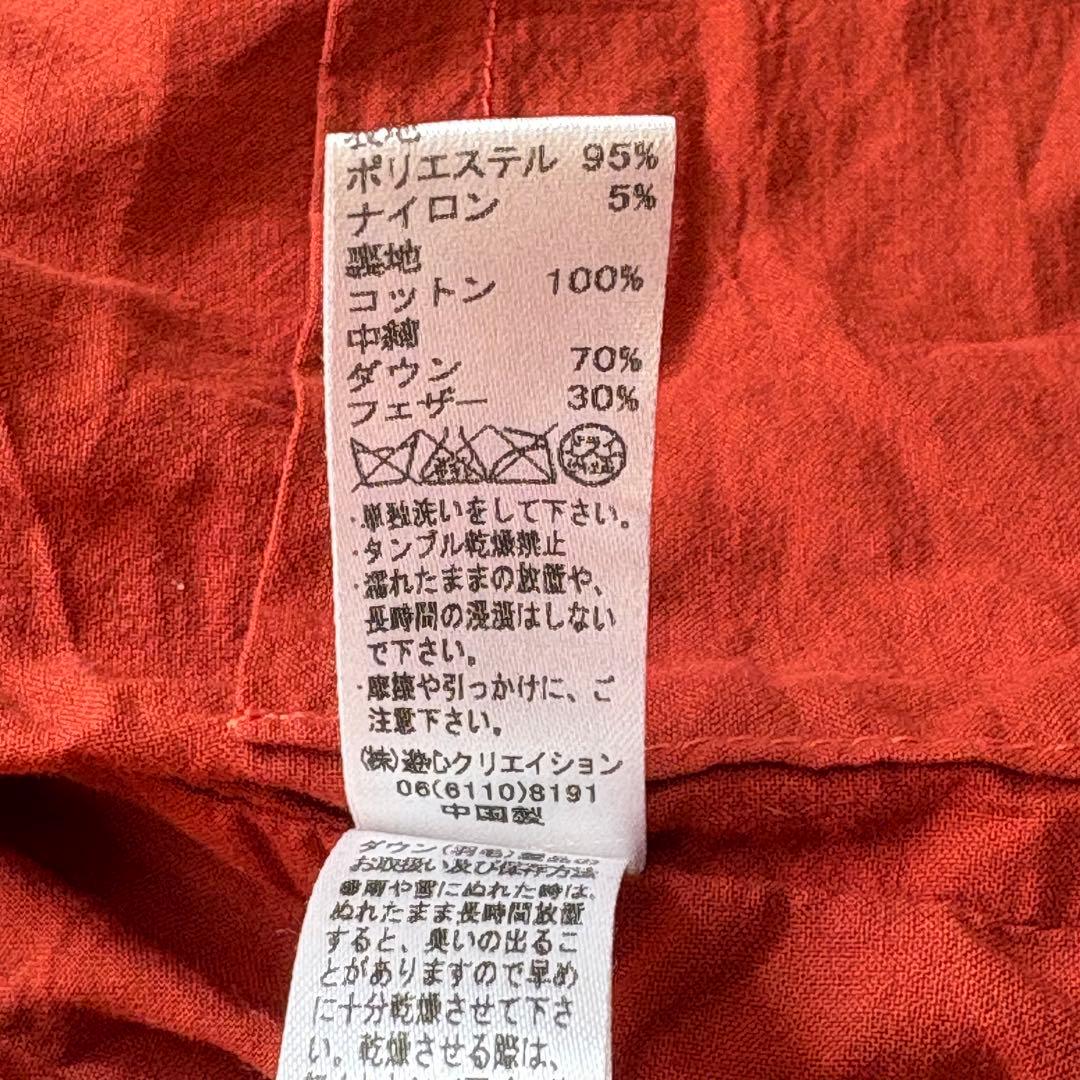 表地
ポリエステル 95%
ナイロン 5%
裏地
コットン 100%
中綿
ダウン 70%
フェザー 30%
ドライ
・単独洗いをして下さい。
・タンブル乾燥禁止
・濡れたままの放置や、
長時間の浸漬はしない
で下さい。
・摩擦や引っかけに、ご
注意下さい。
(株)遊心クリエイション
06(6110)8191
中国製
ダウン(羽毛)製品の
お取扱い及び保存方法
●雨や雪にぬれた時は、
ぬれたまま長時間放置
すると、臭いの出るこ
とがありますので早め
に十分乾燥させて下さ
い。乾燥させる際は、